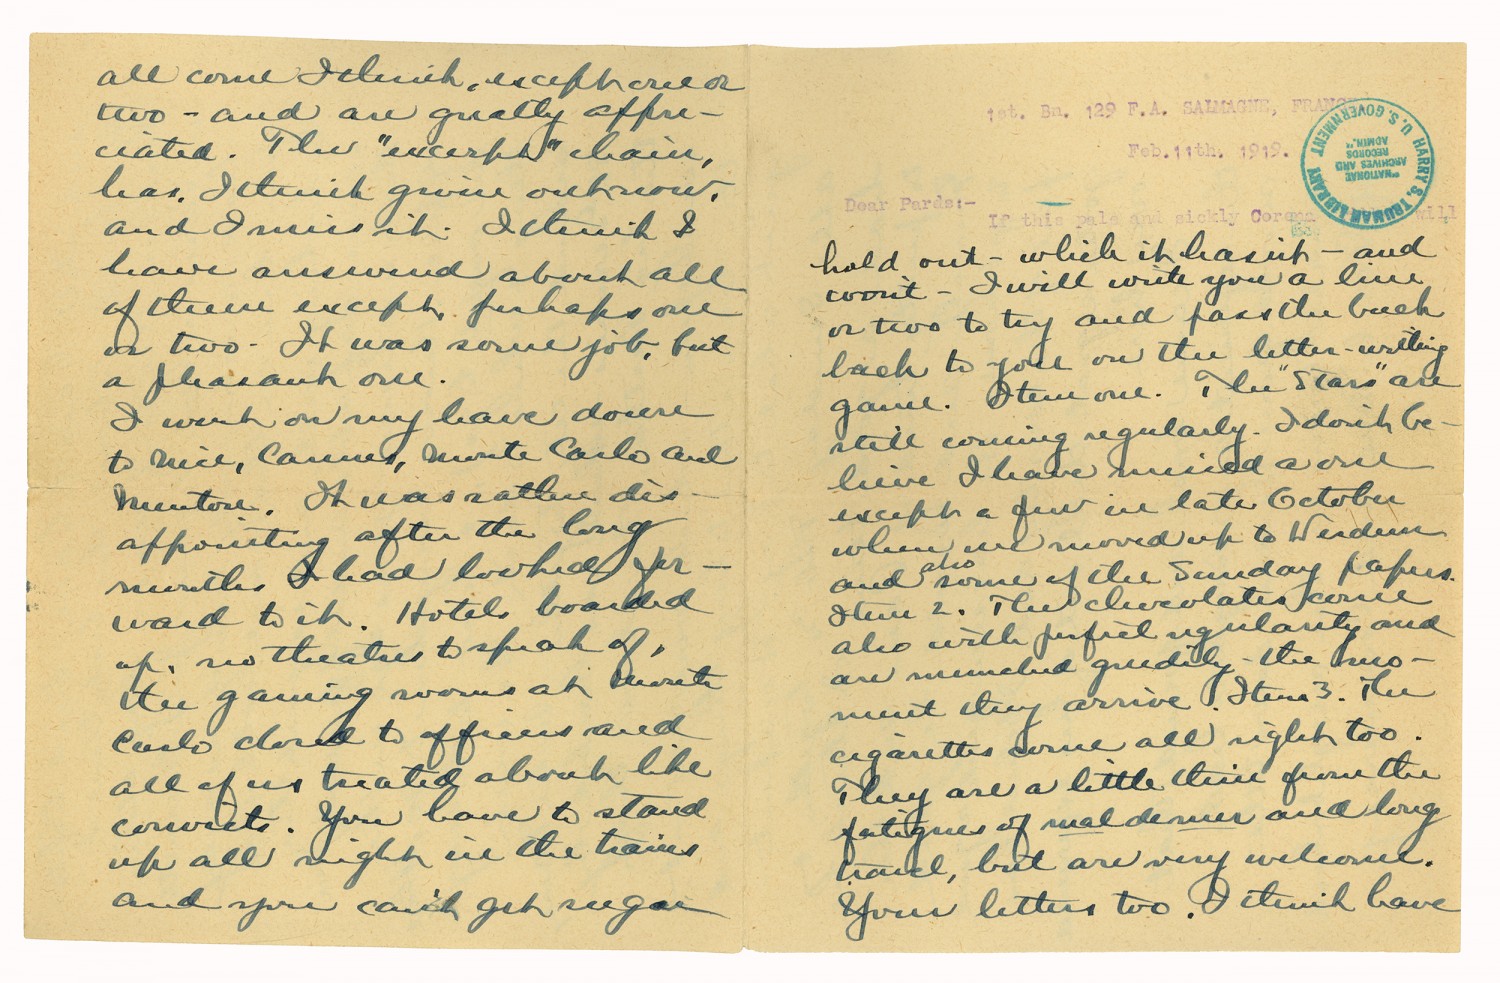 1st. Bn. 129 F.A. SALMAGNE, FRANCE
Feb.11th. 1919.
HARRY S. TRUMAN LIBRARY U.S. GOVERNMENT
"NATIONAL
ARCHIVES AND
RECORDS
ADMIN."
Dear Pards:-
If this pale and sickly Corona will
hold out - which it hasn't - and
won't - I will write you a line
or two to try and pass the buck
back to you on the letter-writing
game. Item one. The "Stars" are
still coming regularly. I don't be-
lieve I have missed a one
except a few in late October
when we moved up to Verdun
and also some of the Sunday papers.
Item 2. The chocolates come
also with perfect regularity and
are munched greedily the mo-
ment they arrive. Item 3. The
cigarettes come all right too.
They are a little thin from the
fatigues of mal de mer and long
travel, but are very welcome.
Your letters too. I think have
all come I think, except one or
two - and are greatly appre-
ciated. The "excerpt" chain,
has, I think gone out now,
and I miss it. I think I
have answered about all
of them except, perhaps one
or two - It was some job, but
a pleasant one.
I went on my leave down
to Nice, Cannes, Monte Carlo and
Mentone. It was rather dis-
appointing after the long
months I had looked for-
ward to it. Hotels boarded
up, no theatres to speak of,
the gaming rooms at Monte
Carlo closed to officers and
all of us treated about like
convicts. You have to stand
up all night in the trains
and you can't get sugar